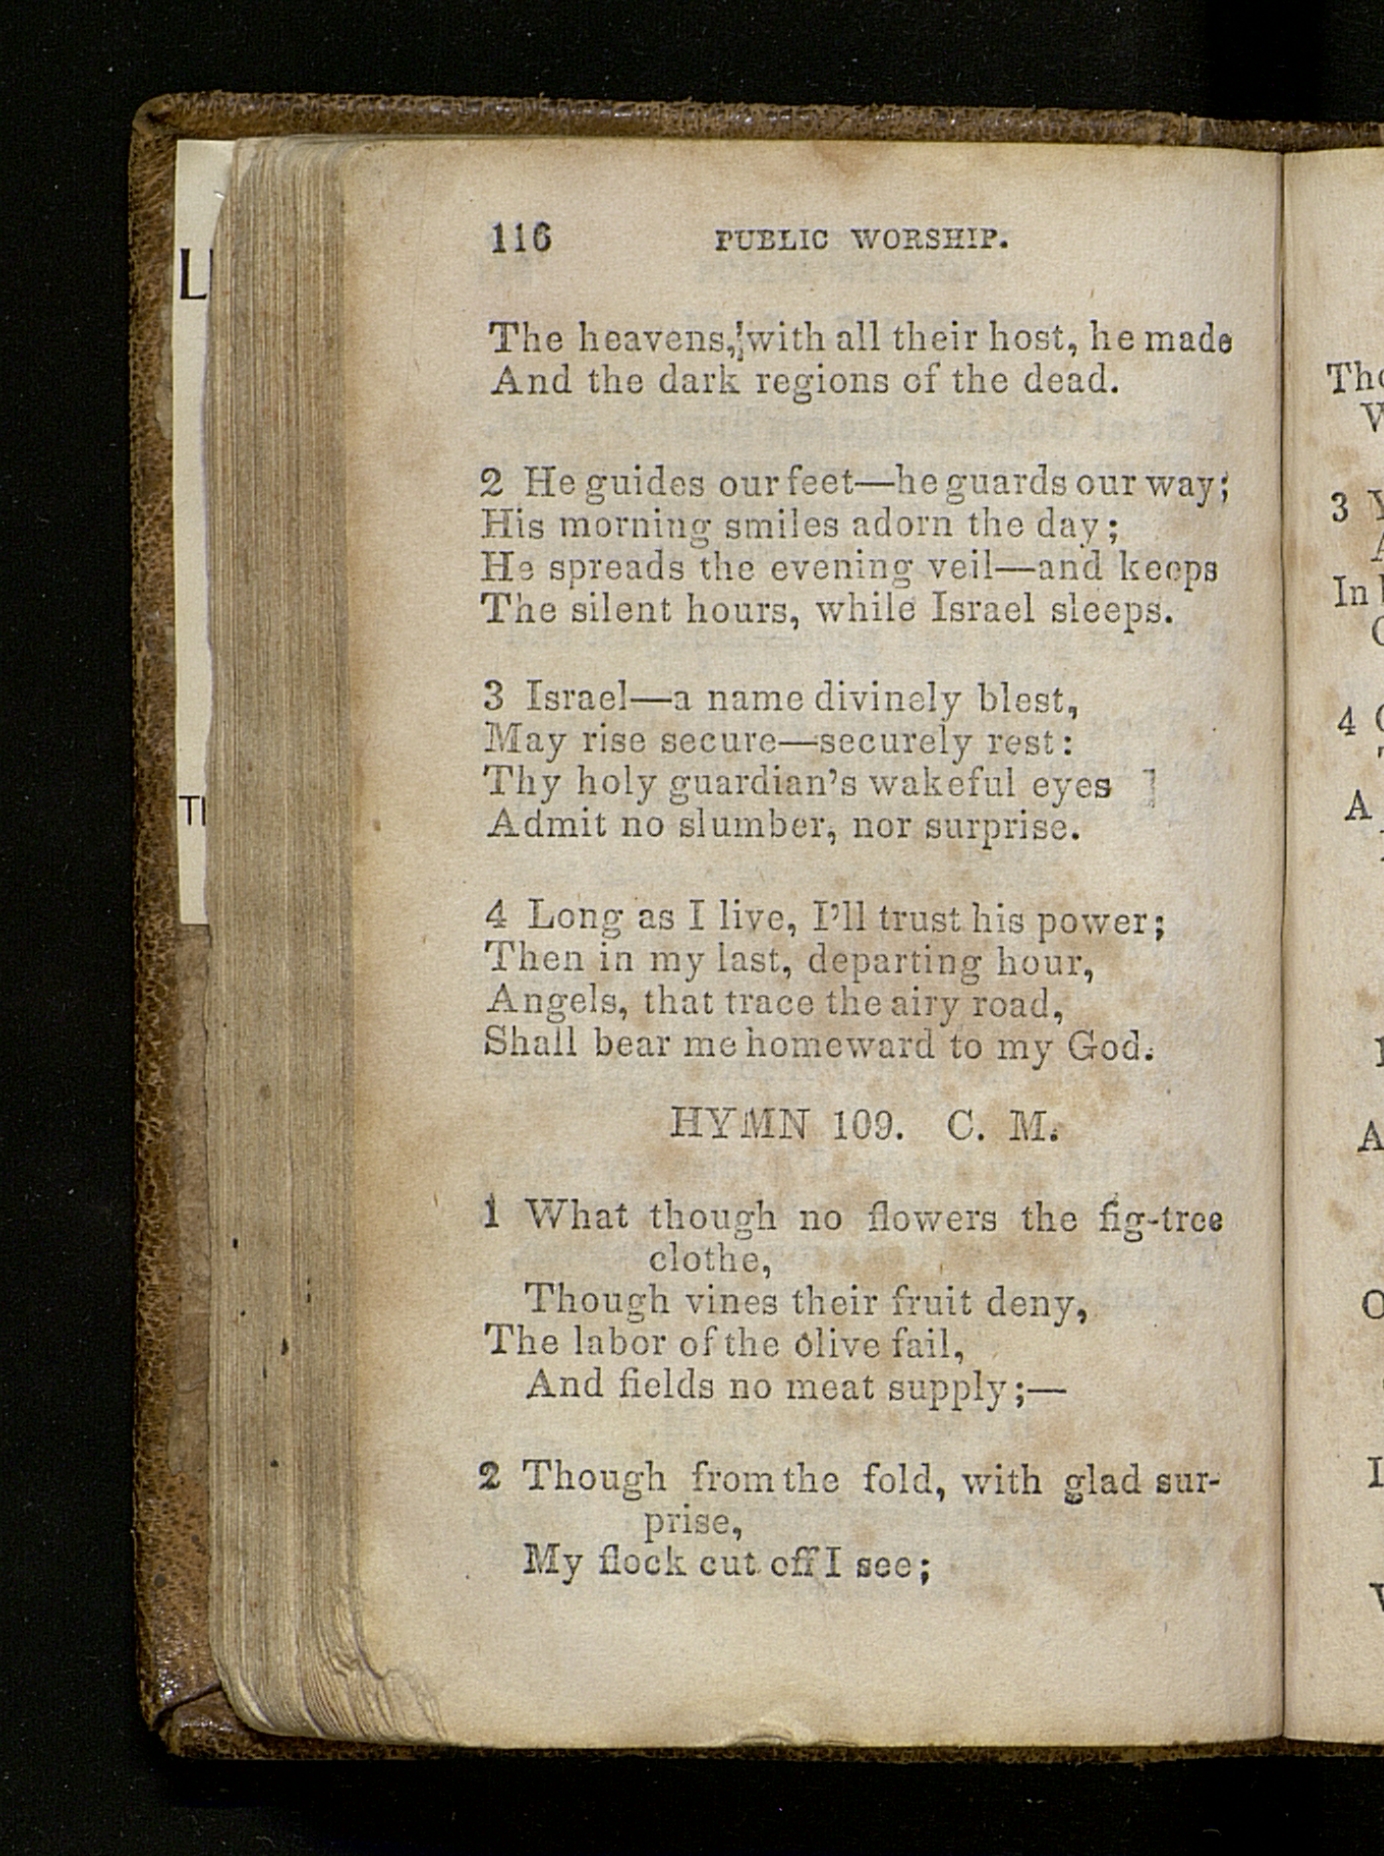 116 PUBLIC WORSHIP.
The heavens, with all their host, he made
And the dark regions of the dead.
2 He guides our feet—he guards our way;
His morning smiles adorn the day;
He spreads the evening veil—and keeps
The silent hours, while Israel sleeps.
3 Israel—a name divinely blest,
May rise secure—securely rest:
Thy holy guardian's wakeful eyes
Admit no slumber, nor surprise.
4 Long as I live, I'll trust his power;
Then in my last, departing hour,
Angels, that trace the airy road,
Shall bear me homeward to my God.
HYMN 109. C. M.
1 What though no flowers the fig-tree
clothe,
Though vines their fruit deny,
The labor of the olive fail,
And fields no meat supply;—
2 Though from the fold, with glad sur-
prise,
My flock cut off I see;